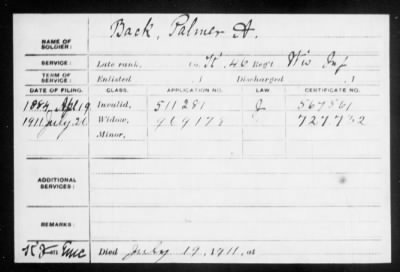 NAME OF SOLDIER: Back, Palmer A.
SERVICE: Late rank, Co. K, 46 Reg't Wis Inf
TERM OF SERVICE: Enlisted , 1 Discharged , 1
DATE OF FILING. CLASS. APPLICATION NO. LAW CERTIFICATE NO.
1884, Apl 19 Invalid, 511281 J 567561
1911 July 26 Widow, 969178 727752
Minor,
ADDITIONAL SERVICES:
REMARKS:
Died July 19, 1911, at